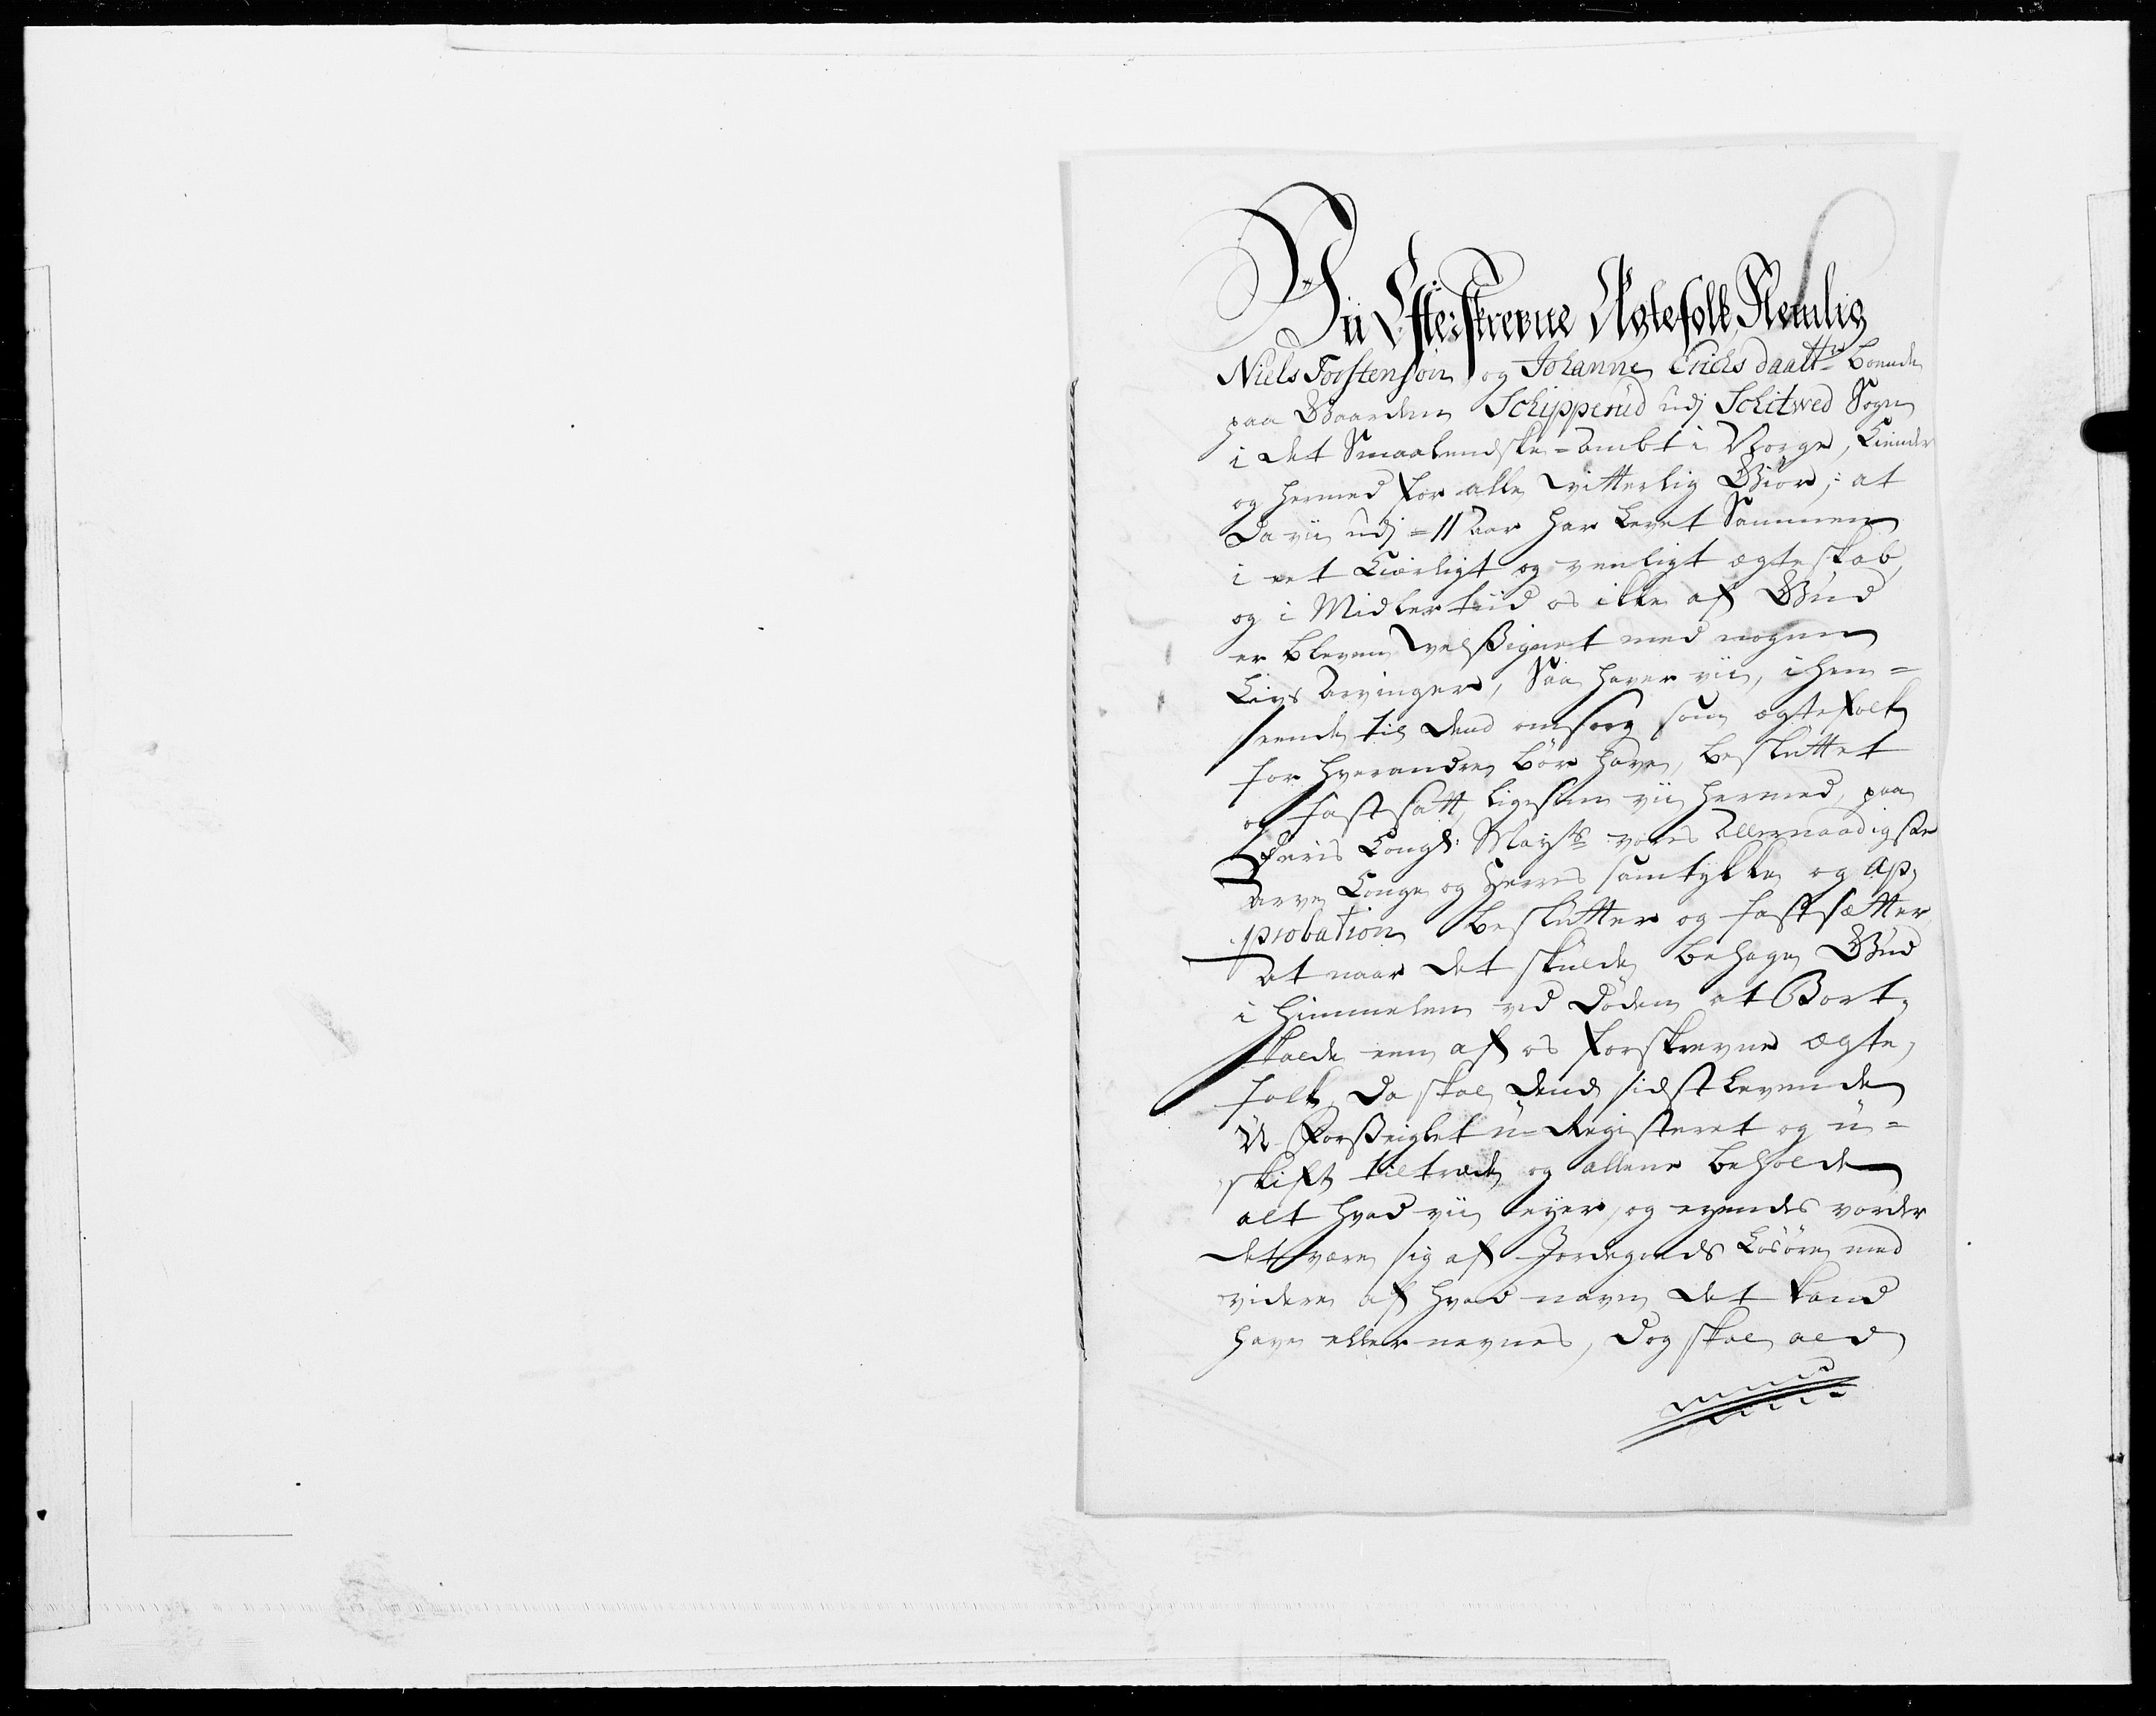 Vii Efterskrevne Ægtefolk Nemlig
Niels Torstensøn og Johanne Erichs daatter boende
paa Gaarden Schipperud udj Schitwed Sogn
i det Smaalendske-ambt i Norge, Kiender
og hermed for alle vitterlig Giør; at
Da vii udj = 11 Aar har Levet Sammen
i eet Kierligt og venligt ægteskab,
og i Midlertiid os ikke af Gud
er bleven velsignet med nogen
Livs Arvinger, Saa haver vii, i hen=
seende til dend omsorg som ægtefolk
for hverandre bør have, besluttet
og fastsatt, ligesom vii hermed, paa
Deris Kongl: Mayts vores Allernaadigste
Arve Konge og Herres samtykke og Ap,
probation besluter og fastsætter
At naar det skulde behage Gud
i Himmelen ved Døden at Bort,
kalde een af os forskrevne Ægte,
folk, Da skal dend sidst Levende
U-forseiglet u-Registeret og u=
skift tiltræde og allene beholde
alt hvad vii eyer og eyendes vorder
det være sig af Jordegods Løsøre med
videre af hvad navn det kand
have eller nevnes, dog skal ald